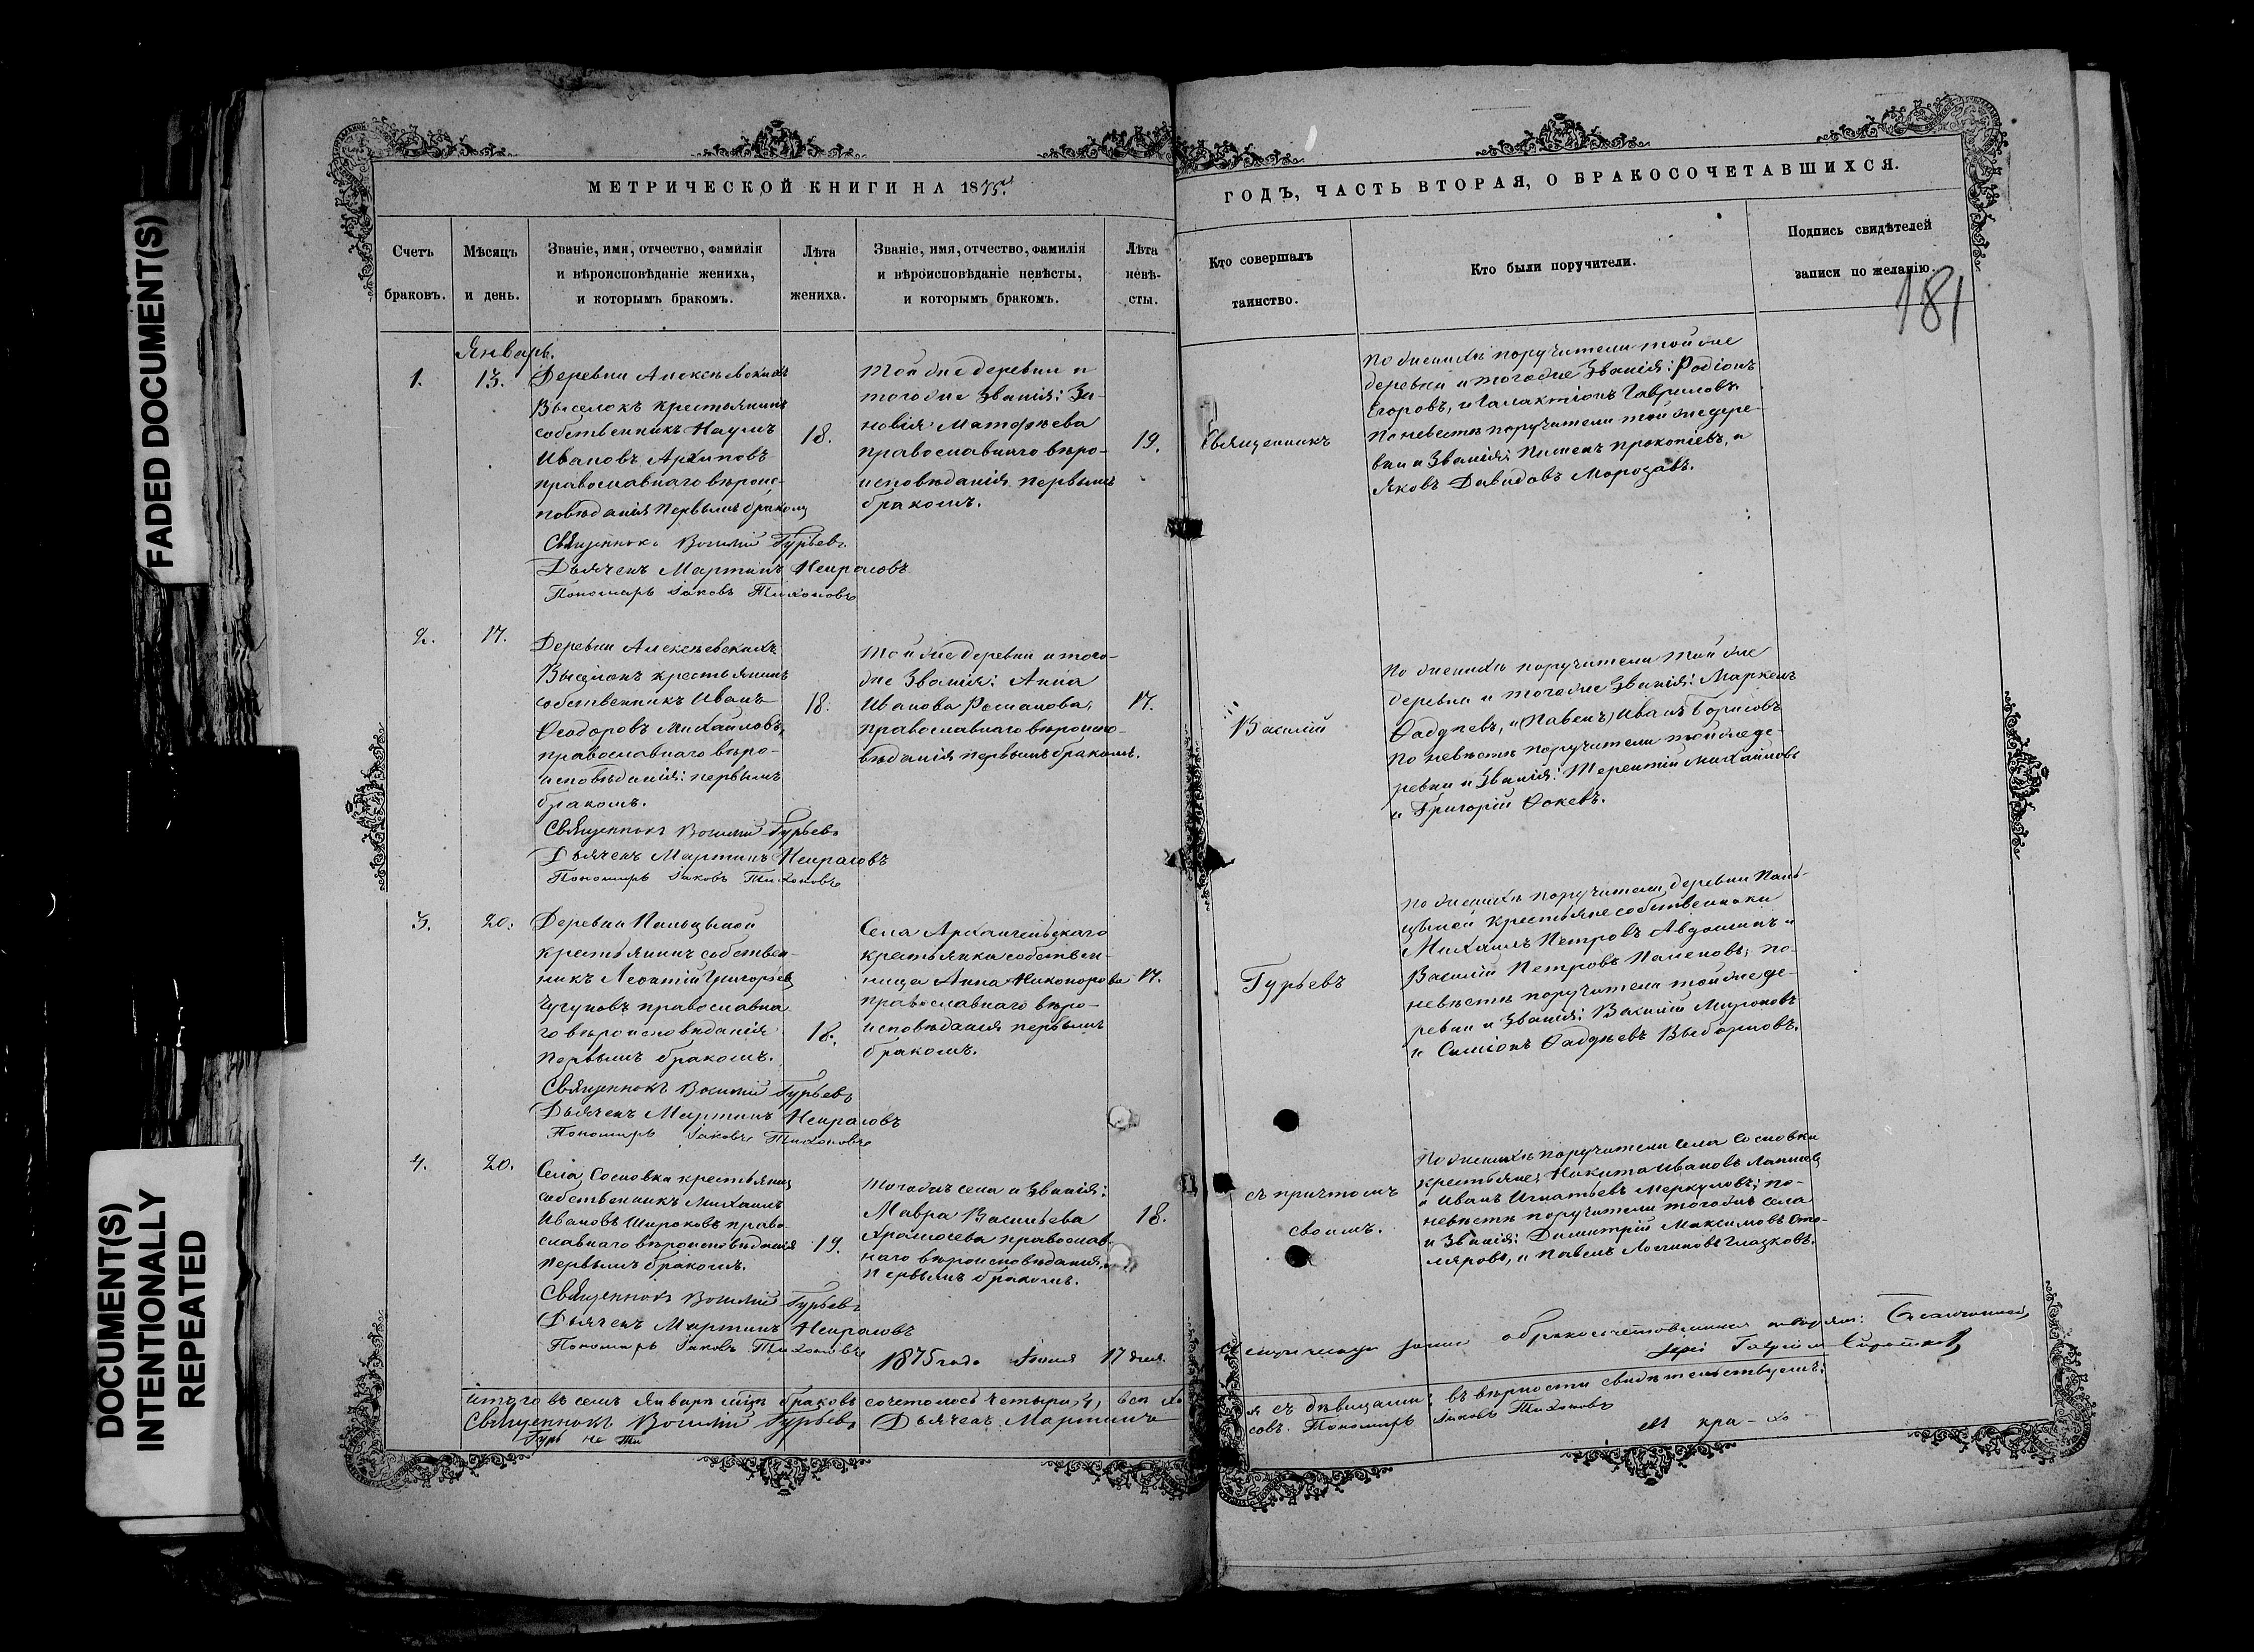 FADED DOCUMENT(S)
DOCUMENT(S)
INTENTIONALLY
REPEATED
МЕТРИЧЕСКОЙ КНИГИ НА 1875й
Счетъ
браковъ.
Мѣсяцъ
и день.
Званіе, имя, отчество, фамилія
и вѣроисповѣданіе жениха,
и которымъ бракомъ.
Лѣта
жениха.
Званіе, имя, отчество, фамилія
и вѣроисповѣданіе невѣсты,
и которымъ бракомъ.
Лѣта
невѣ-
сты.
Январь.
1.
13.
Деревни Алексѣевскихъ
Выселокъ крестьянинъ
собственникъ Наумъ
Ивановъ Архиповъ
православнаго вѣроис-
повѣданія первымъ бракомъ
18.
Той же деревни и
тогоже званія: Зи-
новія Матфѣева
православнаго вѣро-
исповѣданія первымъ
бракомъ.
19.
Священникъ Василій Гурьевъ
Дьячекъ Мартинъ Некрасовъ
Пономарь Іаковъ Тихоновъ
2.
17.
Деревни Алексѣевскихъ
Выселокъ крестьянинъ
собственникъ Иванъ
Ѳеодоровъ Михайловъ,
православнаго вѣро-
исповѣданія: первымъ
бракомъ.
18.
Той же деревни и того-
же званія: Анна
Иванова Романова,
православнаго вѣроиспо-
вѣданія первымъ бракомъ.
17.
Священникъ Василій Гурьевъ
Дьячекъ Мартинъ Некрасовъ
Пономарь Іаковъ Тихоновъ
3.
20.
Деревни Пальцыной
крестьянинъ собствен-
никъ Леонтій Григорьевъ
Чугуновъ православна
го вѣроисповѣданія
первымъ бракомъ.
18.
Села Архангельскаго
крестьянка собствен-
ница Анна Никонорова
православнаго вѣро-
исповѣданія первымъ
бракомъ.
17.
Священникъ Василій Гурьевъ
Дьячекъ Мартинъ Некрасовъ
Пономарь Іаковъ Тихоновъ
4.
20.
Села Сосновки крестьянинъ
собственникъ Михаилъ
Ивановъ Широковъ право
славнаго вѣроисповѣданія
первымъ бракомъ.
19.
Тогожъ села и званія:
Мавра Васильева
православ-
наго вѣроисповѣданія,
первымъ бракомъ.
18.
Священникъ Василій Гурьевъ
Дьячекъ Мартинъ Некрасовъ
Пономарь Іаковъ Тихоновъ
1875 года Іюня 17 дня
Итого въ семъ Январѣ мцѣ браковъ сочеталось четыре, 4,
Священникъ Василій Гурьевъ Дьячекъ Мартинъ
ГОДЪ, ЧАСТЬ ВТОРАЯ, О БРАКОСОЧЕТАВШИХСЯ.
Кто совершалъ
таинство.
Кто были поручители.
Подпись свидѣтелей
записи по желанію.
181
Священникъ
Василій
Гурьевъ
съ причтомъ
своимъ.
По женихѣ поручители той же
деревни и тогоже званія: Родіонъ
Егоровъ, и Галактіонъ Гавриловъ
По невѣстѣ поручители той же дере-
вни и званія: Пименъ Прокопіевъ, и
Яковъ Давидовъ Морозовъ.
По женихѣ поручители той же
деревни и тогоже званія: Маркелъ
Ѳадѣевъ, и (Павелъ) Иванъ Борисовъ
По невѣстѣ поручители той же де-
ревни и званія: Терентій Михайловъ
и Григорій Ѳокевъ.
По женихѣ поручители, деревни Паль-
цыной крестьяне собственники
Михаилъ Петровъ Авдошинъ и
Василій Петровъ Паленовъ, по-
невѣстѣ поручители той же де-
ревни и званія: Василій Мироновъ
и Симіонъ Ѳадѣевъ Выборновъ.
По женихѣ поручители села Сосновки
крестьяне; Никита Ивановъ
и Иванъ Игнатьевъ Меркуловъ; по-
невѣстѣ поручители тогожъ села
и званія: Димитрій Максимовъ Сто-
ляровъ, и Павелъ Логиновъ Глазковъ.
съ дѣвицами; въ вѣрности свидѣтельствуемъ:
совъ. Пономарь Іаковъ Тихоновъ